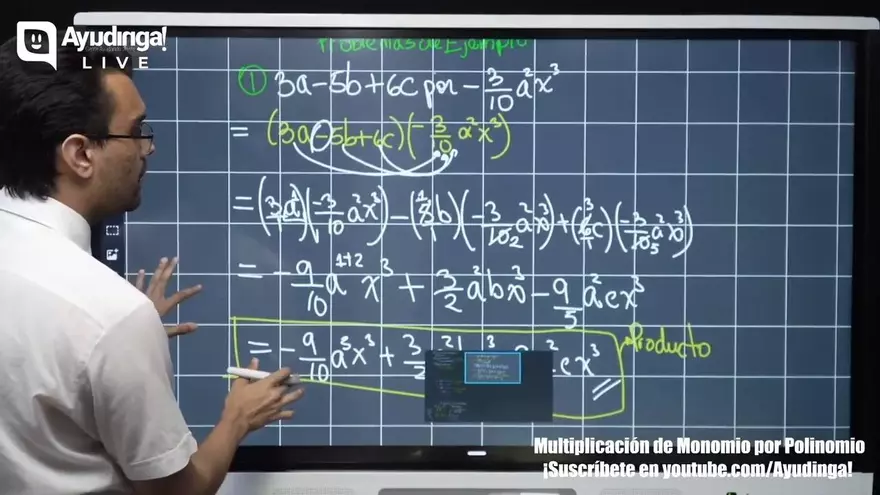 Ayudinga!
LIVE
Problemas de Ejemplo
① 3a-5b+6c por -3/10 a²x³
= (3a-5b+6c)(-3/10 a²x³)
= (3a)(-3/10 a²x³) - (5b)(-3/10 2 a²x³) + (6 3 c)(-3/10 5 a²x³)
= -9/10 a¹⁺² x³ + 3/2 a²bx³ - 9/5 a²cx³
= -9/10 a³x³ + 3/2 cx³
Producto
Multiplicación de Monomio por Polinomio
¡Suscríbete en youtube.com/Ayudinga!